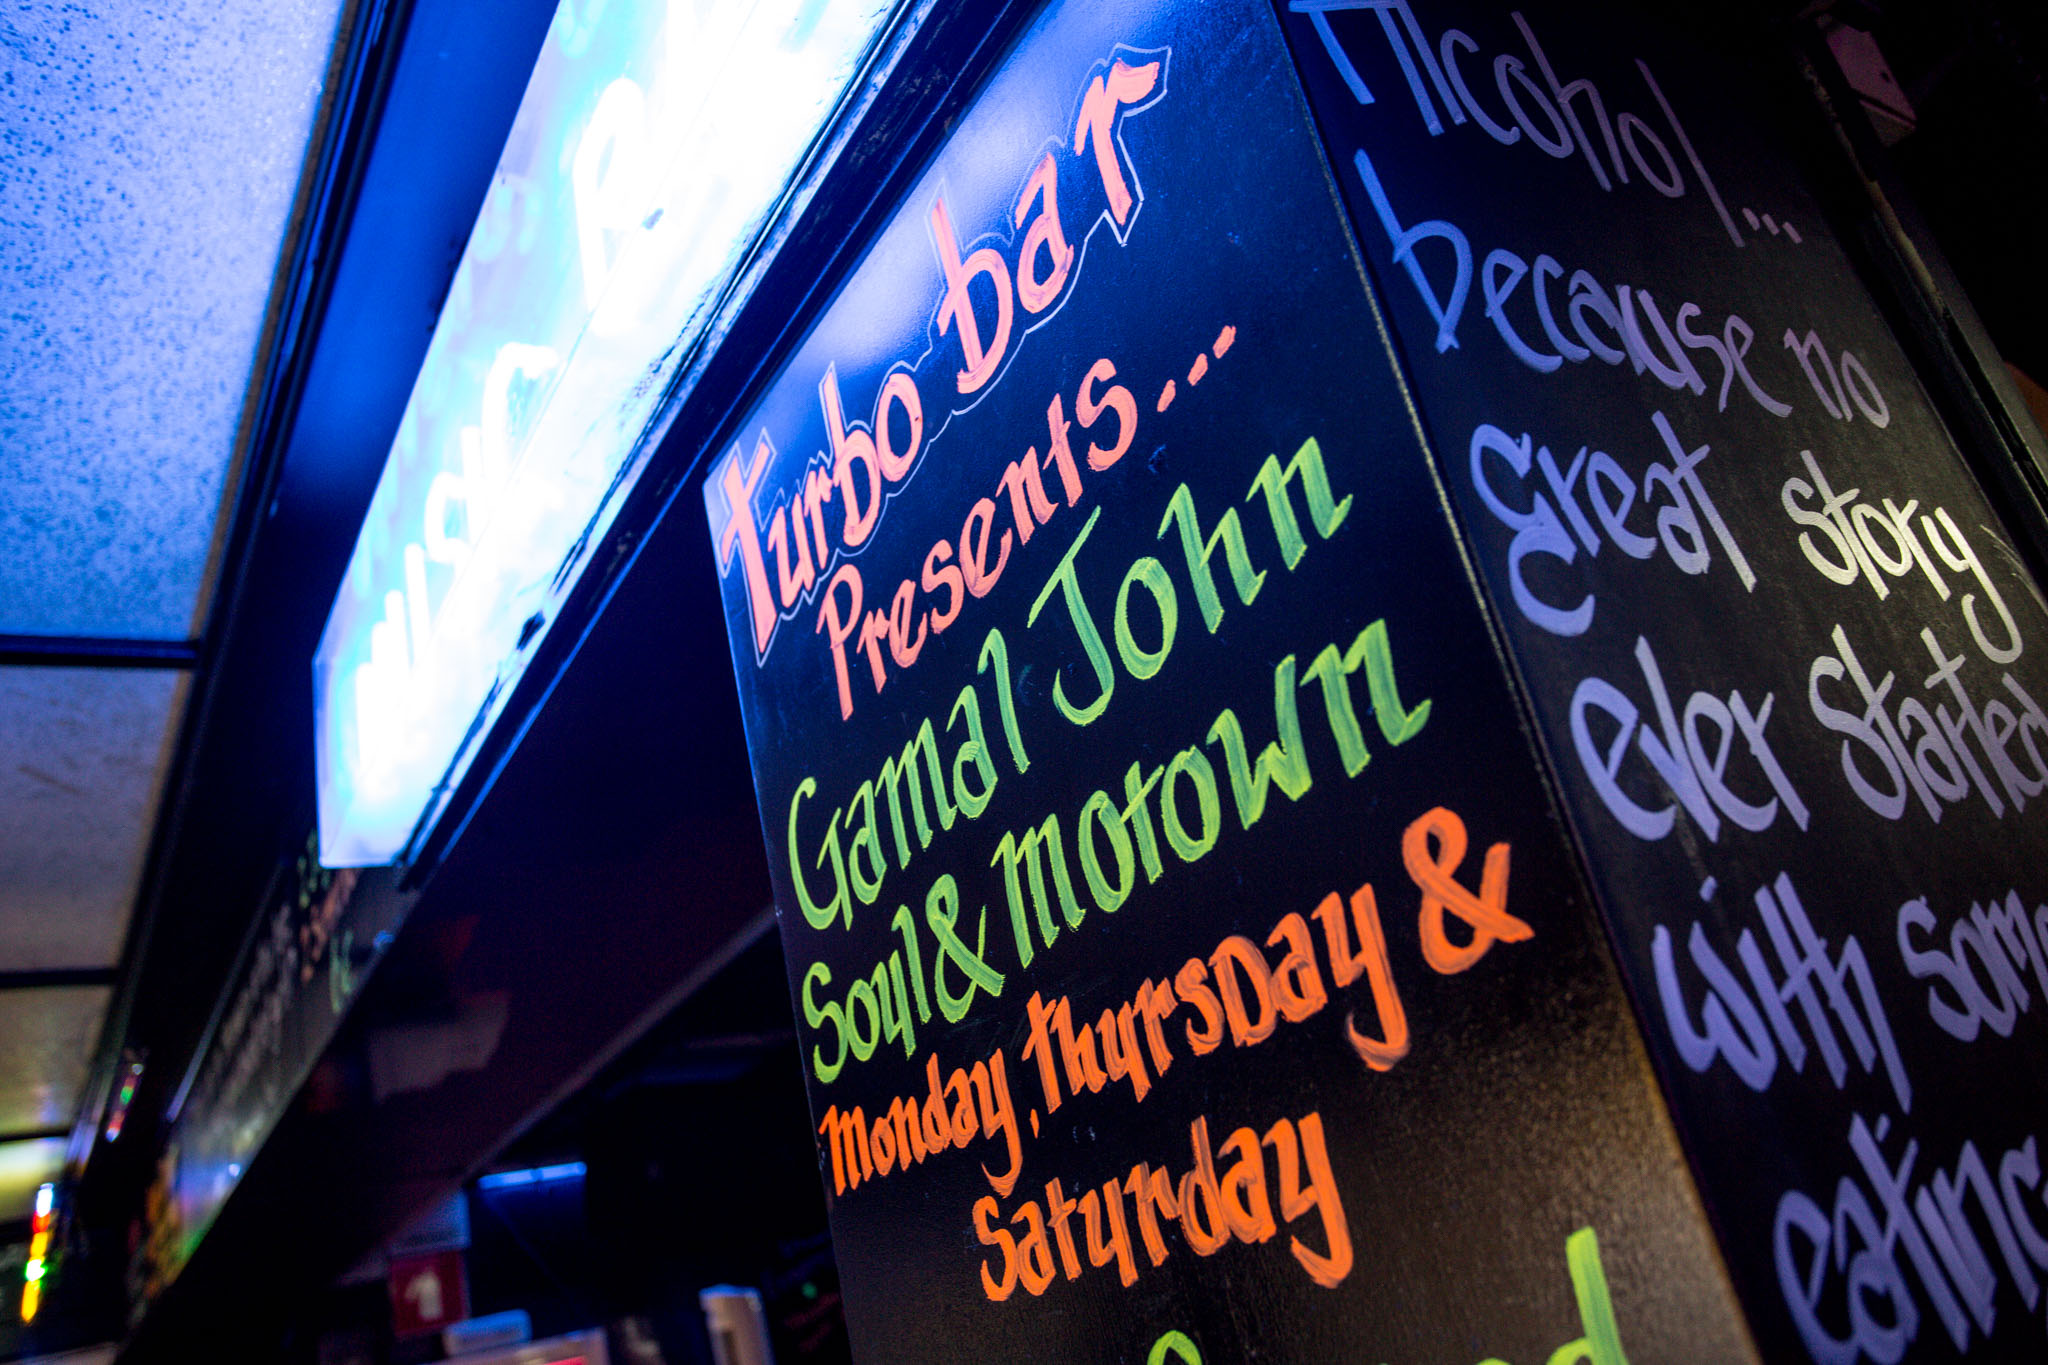 turbo bar
Presents...
Gamal John
Soul & Motown
Monday, Thursday &
Saturday
Alcohol...
because no
Great story
ever started
with
1